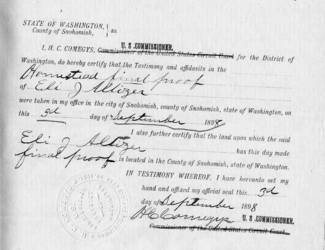 STATE OF WASHINGTON,
County of Snohomish, } ss
U. S. COMMISSIONER.
I, H. C. COMEGYS, Commissioner of the United States Circuit Court for the District of
Washington, do hereby certify that the Testimony and affidavits in the
Homestead final proof
of Eli J Altizer
were taken in my office in the city of Snohomish, county of Snohomish, state of Washington, on
this 3d day of September 1898
I also further certify that the land upon which the said
Eli J Altizer has this day made
final proof is located in the County of Snohomish, state of Washington.
IN TESTIMONY WHEREOF, I have hereunto set my
hand and affixed my official seal this 3d
day of September 1898
H C Comegys
U. S. COMMISSIONER.
Commissioner of the United States Circuit Court.